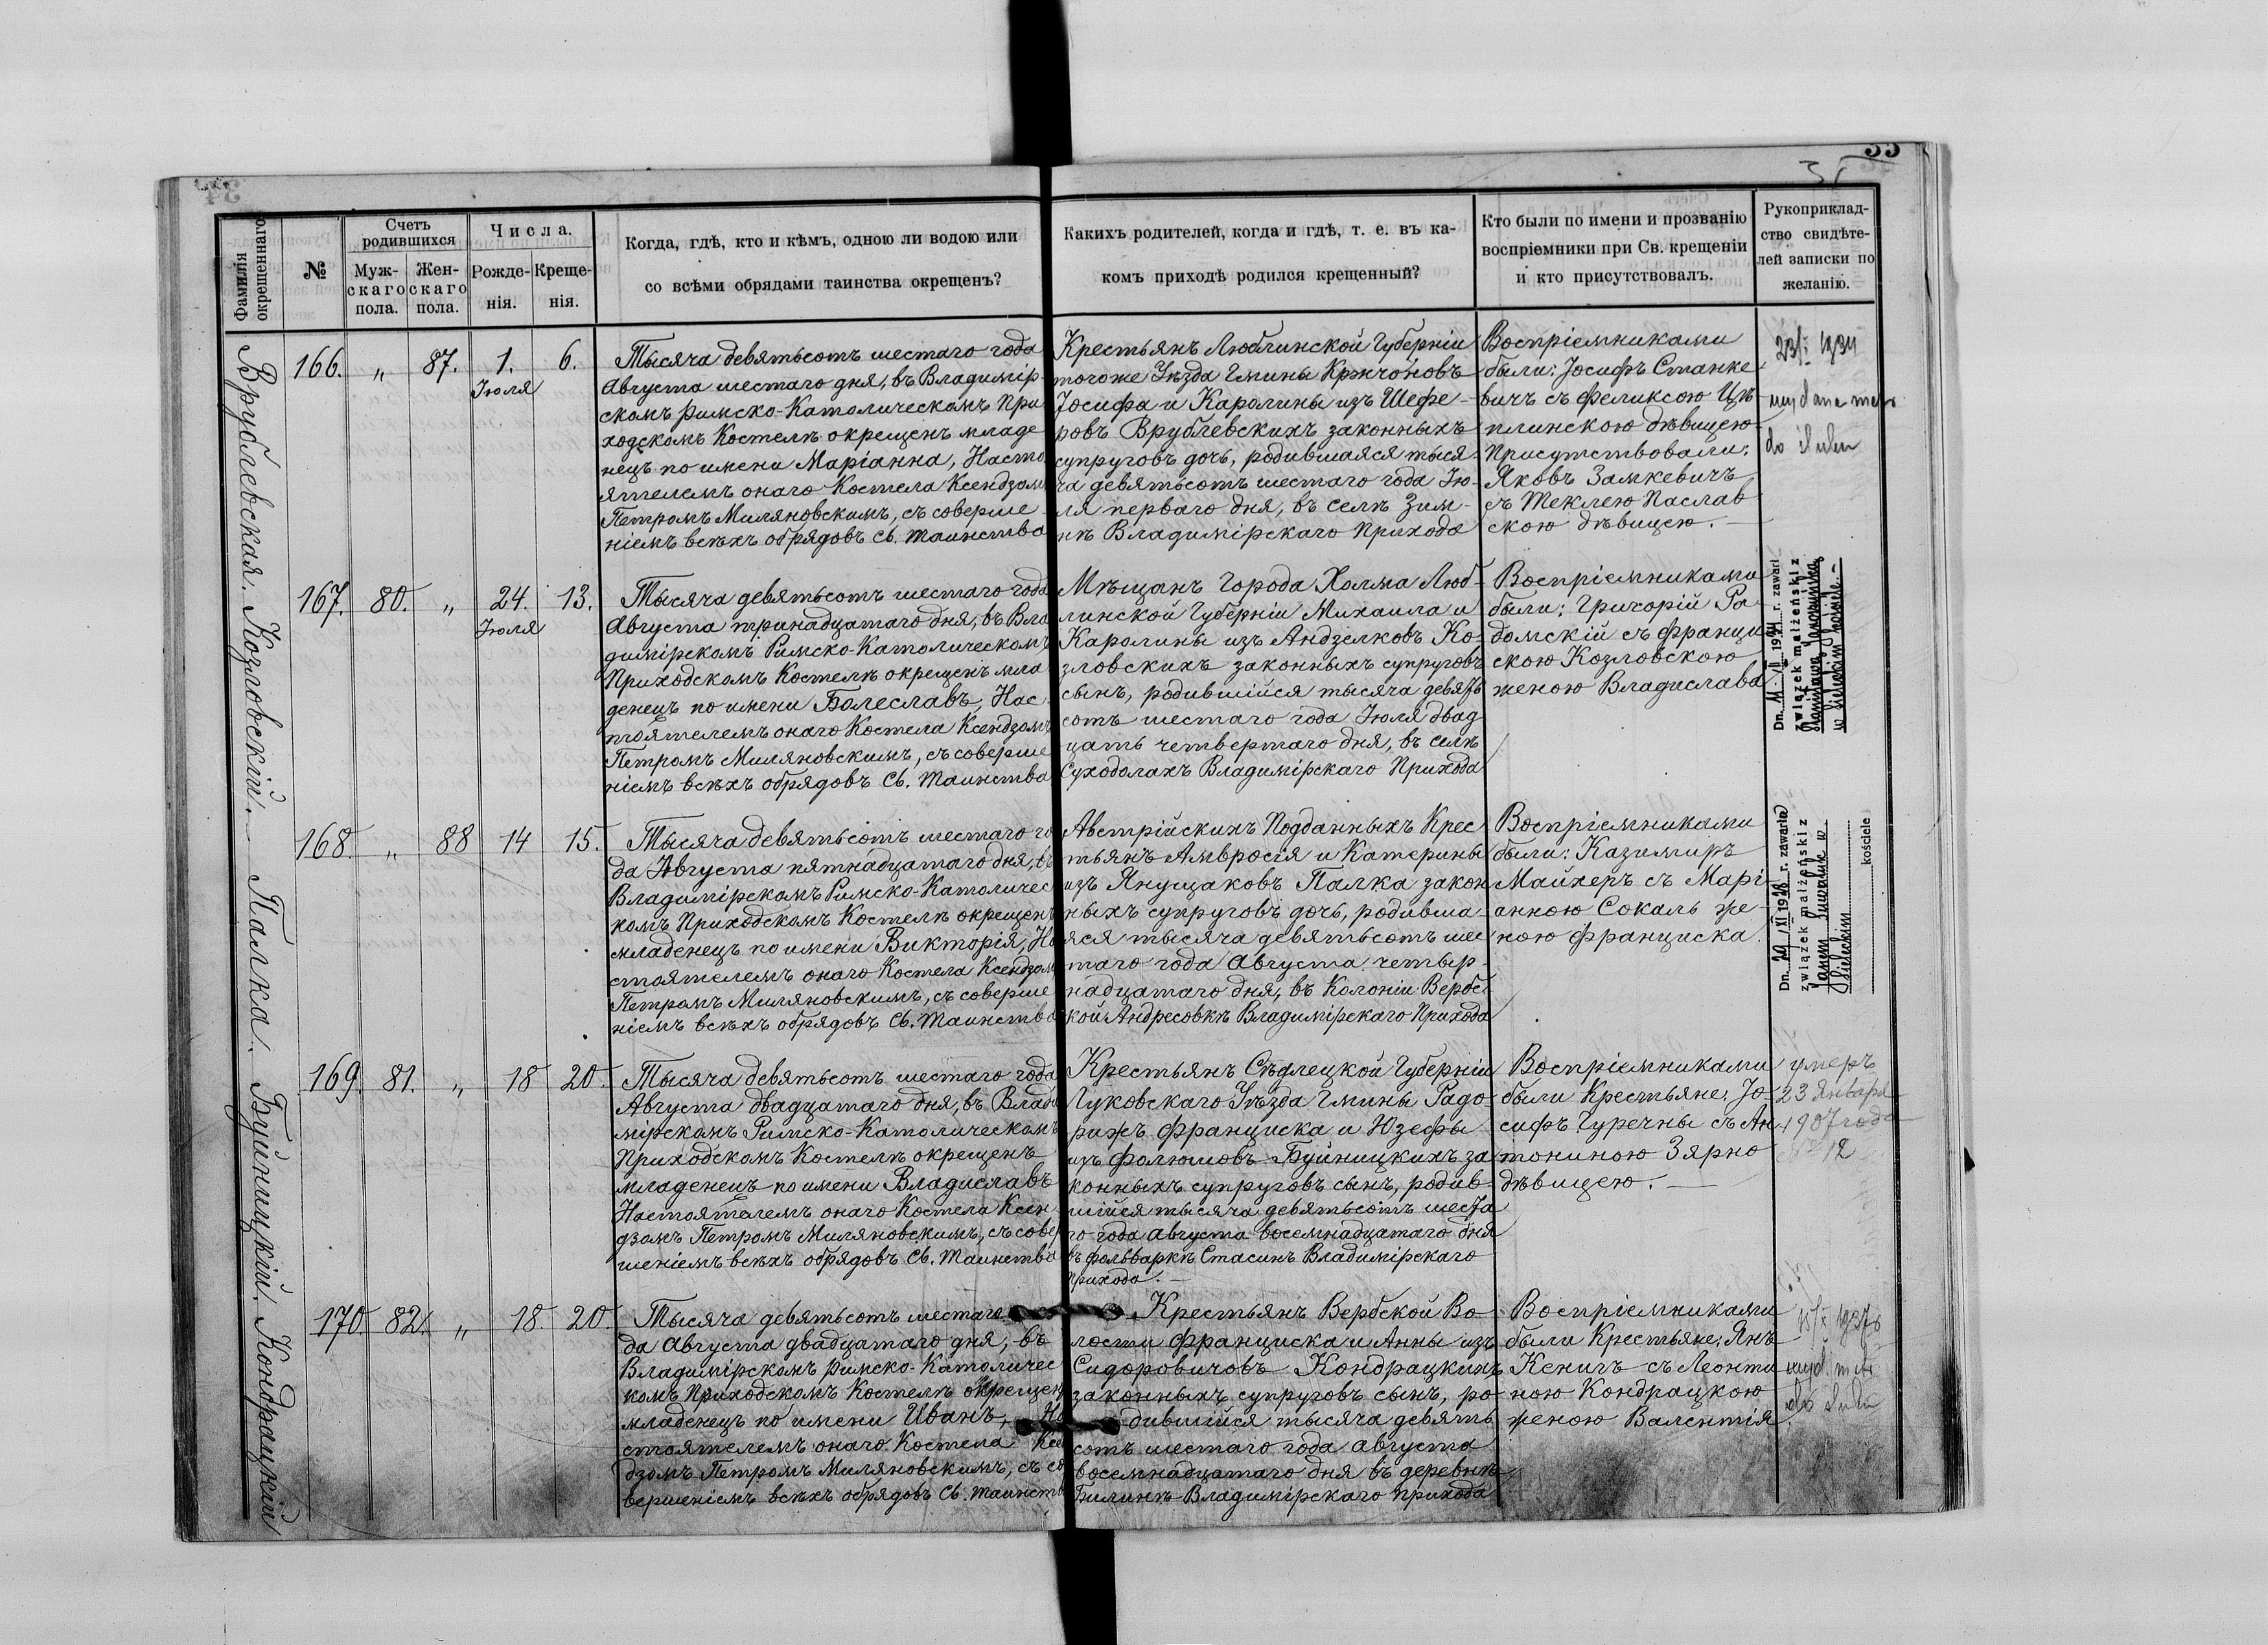 35
Фамилія окрещеннаго
№
Счетъ родившихся
Муж-
скаго
пола.
Жен-
скаго
пола.
Числа.
Рожде-
нія.
Креще-
нія.
Когда, гдѣ, кто и кѣмъ, одною ли водою или
со всѣми обрядами таинства окрещенъ?
Какихъ родителей, когда и гдѣ, т. е. въ ка-
комъ приходѣ родился крещенный?
Кто были по имени и прозванію
воспріемники при Св. крещеніи
и кто присутствовалъ.
Рукоприклад-
ство свидѣте-
лей записки по
желанію.
Врублевская.
166. „ 87. 1. Іюля 6.
Тысяча девятьсотъ шестаго года
Августа шестаго дня, въ Владимір-
скомъ Римско-Католическомъ При
ходскомъ Костелѣ окрещенъ младе
нецъ по имени Маріанна, Насто
ятелемъ онаго Костела Ксендзом
Петромъ Миляновскимъ, съ соверше
ніемъ всѣхъ обрядовъ Св. Таинства
Крестьянъ Люблинской Губерніи
тогоже Уѣзда Гмины Кржчоновъ
Іосифа и Каролины изъ Шефе-
ровъ Врублевскихъ законныхъ
супруговъ дочь, родившаяся тыся-
ча девятьсотъ шестаго года Ію-
ля перваго дня, въ селѣ Зим-
нѣ Владимірскаго Прихода
Воспріемниками
были: Іосифъ Станке
вичъ съ Феликсою Цѣ-
плинскою дѣвицею
Присутствовали:
Яковъ Замкевичъ
съ Теклею Паслав
скою дѣвицею.
1934
do ślubu
Козловскій.
167. 80. „ 24. Іюля 13.
Тысяча девятьсотъ шестаго года
Августа тринадцатаго дня, въ Вла
димірскомъ Римско-Католическомъ
Приходскомъ Костелѣ окрещенъ мла
денецъ по имени Болеславъ, Нас-
тоятелемъ онаго Костела Ксендзомъ
Петромъ Миляновскимъ, съ соверше
ніемъ всѣхъ обрядовъ Св. Таинства
Мѣщанъ города Холма Люб-
линской Губерніи Михаила и
Каролины изъ Андзелковъ Ко-
зловскихъ законныхъ супруговъ
сынъ, родившійся тысяча девять
сотъ шестаго года Іюля двад
цать четвертаго дня, въ селѣ
Суходолахъ Владимірскаго Прихода
Воспріемниками
были: Григорій Ра-
домскій съ Франци
скою Козловскою
женою Владислава
Dn. 11 r. zawarł
związek małżeński z
w Sieleckim kościele.
Палка.
168. „ 88 14 15.
Тысяча девятьсотъ шестаго го
да Августа пятнадцатаго дня, въ
Владимірскомъ Римско-Католичес
комъ Приходскомъ Костелѣ окрещенъ
младенецъ по имени Викторія, На
стоятелемъ онаго Костела Ксендзом
Петромъ Миляновскимъ, съ соверше
ніемъ всѣхъ обрядовъ Св. Таинства
Австрійскихъ Подданныхъ Крес
тьянъ Амвросія и Катерины
изъ Янущаковъ Палка закон
ныхъ супруговъ дочь, родивша-
яся тысяча девятьсотъ шес
таго года Августа четыр-
надцатаго дня, въ Колоніи Вербс-
кой Андресовкѣ Владимірскаго Прихода
Воспріемниками
были: Казимиръ
Майхеръ съ Марі-
анною Сокаль же-
ною Франциска.
Dn. 20/XI 1928 r. zawarła
związek małżeński z
Janem w
Sieleckim kościele
Буйницкій.
169. 81. „ 18 20.
Тысяча девятьсотъ шестаго года
Августа двадцатаго дня, въ Влади
мірскомъ Римско-Католическомъ
Приходскомъ Костелѣ окрещенъ
младенецъ по имени Владиславъ
Настоятелемъ онаго Костела Ксен-
дзомъ Петромъ Миляновскимъ, съ совер
шеніемъ всѣхъ обрядовъ Св. Таинства
Крестьянъ Сѣдлецкой Губерніи
Луковскаго Уѣзда Гмины Радо-
рижъ Франциска и Юзефы
изъ Фолюшовъ Буйницкихъ за
конныхъ супруговъ сынъ, родив-
шійся тысяча девятьсотъ шеста
го года Августа восемнадцатаго дня
въ фольваркѣ Стасинъ Владимірскаго
прихода.
Воспріемниками
были Крестьяне: Іо-
сифъ Гуречны съ Ан-
тониною Зярно
дѣвицею.
умеръ
23 Января
1907 года
№ 12
Кондрацкій
170. 82. „ 18. 20.
Тысяча девятьсотъ шестаго
да Августа двадцатаго дня, въ
Владимірскомъ Римско-Католичес
комъ Приходскомъ Костелѣ окрещен
младенецъ по имени Иванъ, На
стоятелемъ онаго Костела Ксен
дзомъ Петромъ Миляновскимъ, съ со
вершеніемъ всѣхъ обрядовъ Св. Таинства
Крестьянъ Вербской Во-
лости Франциска и Анны изъ
Сидоровичовъ Кондрацкихъ
законныхъ супруговъ сынъ, ро-
дившійся тысяча девять
сотъ шестаго года Августа
восемнадцатаго дня въ деревнѣ
Билинѣ Владимірскаго прихода
Воспріемниками
были Крестьяне: Янъ
Кенигъ съ Леонти
ною Кондрацкою
женою Валентія
do ślubu